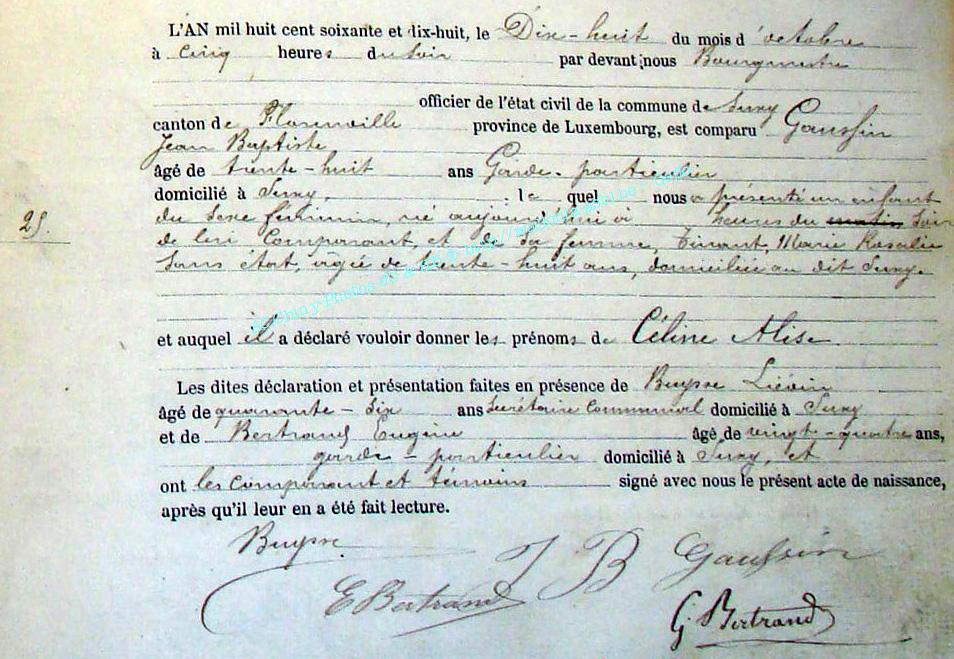 L'AN mil huit cent soixante et dix-huit, le Dix-huit du mois d'octobre
à cinq heures du soir par devant nous Bourgmestre
officier de l'état civil de la commune de Suxy
canton de Florenville province de Luxembourg, est comparu Gaussin
Jean Baptiste
âgé de trente-huit ans Garde-particulier
domicilié à Suxy, lequel nous a présenté un enfant
25. du sexe féminin, né aujourd'hui à heures du matin soir
de lui Comparant, et de sa femme, Tinant, Marie Rosalie
sans état, âgée de trente-huit ans, domiciliée au dit Suxy.
et auquel il a déclaré vouloir donner les prénoms de Céline Alise
Les dites déclaration et présentation faites en présence de Buysse Liévin
âgé de quarante-six ans Secrétaire Communal domicilié à Suxy
et de Bertrand Eugène âgé de vingt-quatre ans,
garde-particulier domicilié à Suxy, et
ont les Comparant et témoins signé avec nous le présent acte de naissance,
après qu'il leur en a été fait lecture.
Buysse
J B Gaussin
E Bertrand
G Bertrand